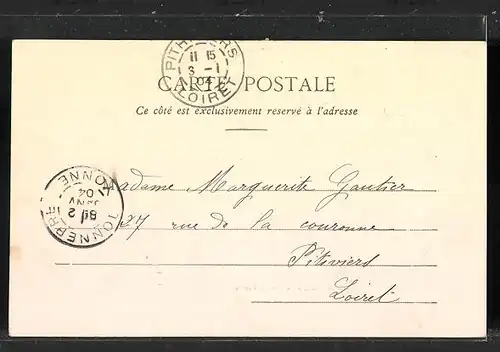 PITHIVIERS
11 15
3 - 1
04
LOIRET
CARTE POSTALE
Ce côté est exclusivement reservé à l'adresse
TONNERRE
2 JANV
04
YONNE
Madame Marguerite Gautier
27 rue de la couronne
Pitiviers
Loiret